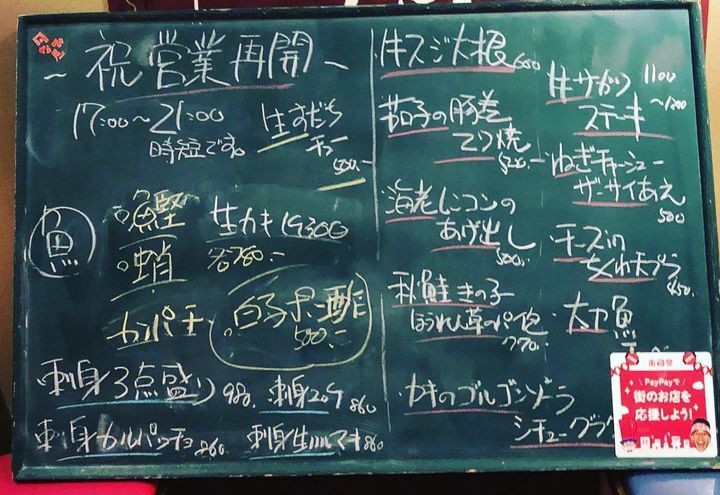 ~祝 営業再開~
17:00~21:00
時短です。
生すだち
チュー
500.-
魚
鰹
蛸
カンパチ
生カキ 1ヶ300
各780-
白子ポン酢
500.-
刺身3点盛り 980.
刺身2点 860
刺身カルパッチョ 860.
刺身生ハルマキ 860
牛スジ大根 600
茄子の豚巻
てり焼
520-
海老レンコンの
あげ出し
500.-
秋鮭きの子
ほうれん草のパイ包
770.
カキのゴルゴンゾーラ
シチューグラ
牛サガリ 1100
ステーキ ~1200
ねぎチャーシュー
ザーサイあえ
500
チーズin
ちくわ天プラ
450.
太刀魚
街のお店を
応援しよう!
PayPayで